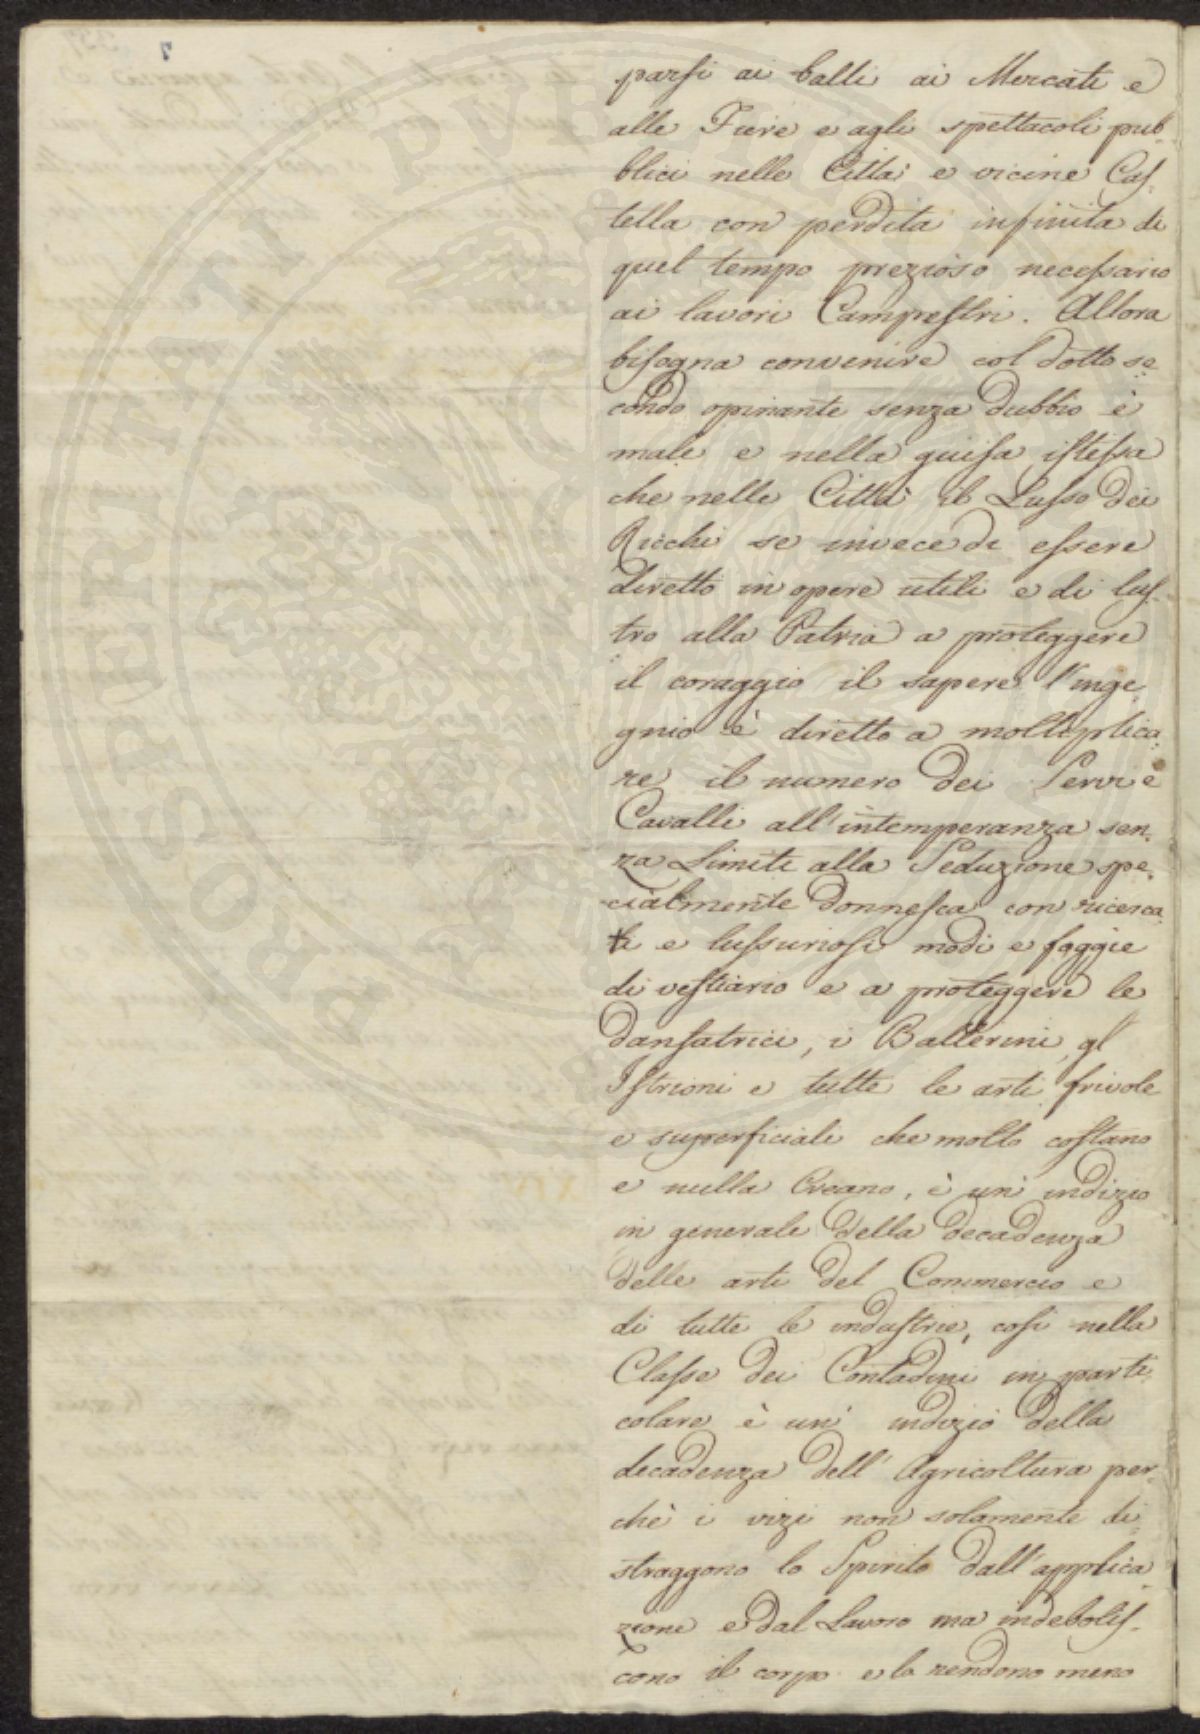 parsi ai balli ai Mercati e
alle Fiere e agli spettacoli pub-
blici nelle Città e vicine Cas-
tella con perdita infinita di
quel tempo prezioso necessario
ai lavori Campestri. Allora
bisogna convenire col dotto se
condo opinante senza dubbio è
male e nella guisa istessa
che nelle Città il Lusso dei
Ricchi se invece di essere
diretto in opere utili e di lus-
tro alla Patria a proteggere
il coraggio il sapere l'inge-
gnio è diretto a moltiplica-
re il numero dei Servi e
Cavalli all'intemperanza sen-
za Limite alla Seduzione spe-
cialmente donnesca con ricerca
ti e lussuriosi modi e foggie
di vestiario e a proteggere le
dansatrici, i Ballerini gl'
Istrioni e tutte le arti frivole
e superficiali che molto costano
e nulla Creano, è un' indizio
in generale della decadenza
delle arti del Commercio e
di tutte le industrie, così nella
Classe dei Contadini in parti
colare è un' indizio della
decadenza dell' Agricoltura per-
chè i vizi non solamente di-
straggono lo Spirito dall' applica
zione e dal Lavoro ma indebolis-
cono il corpo e lo rendono meno
PROSPERITATI PUBLICAE